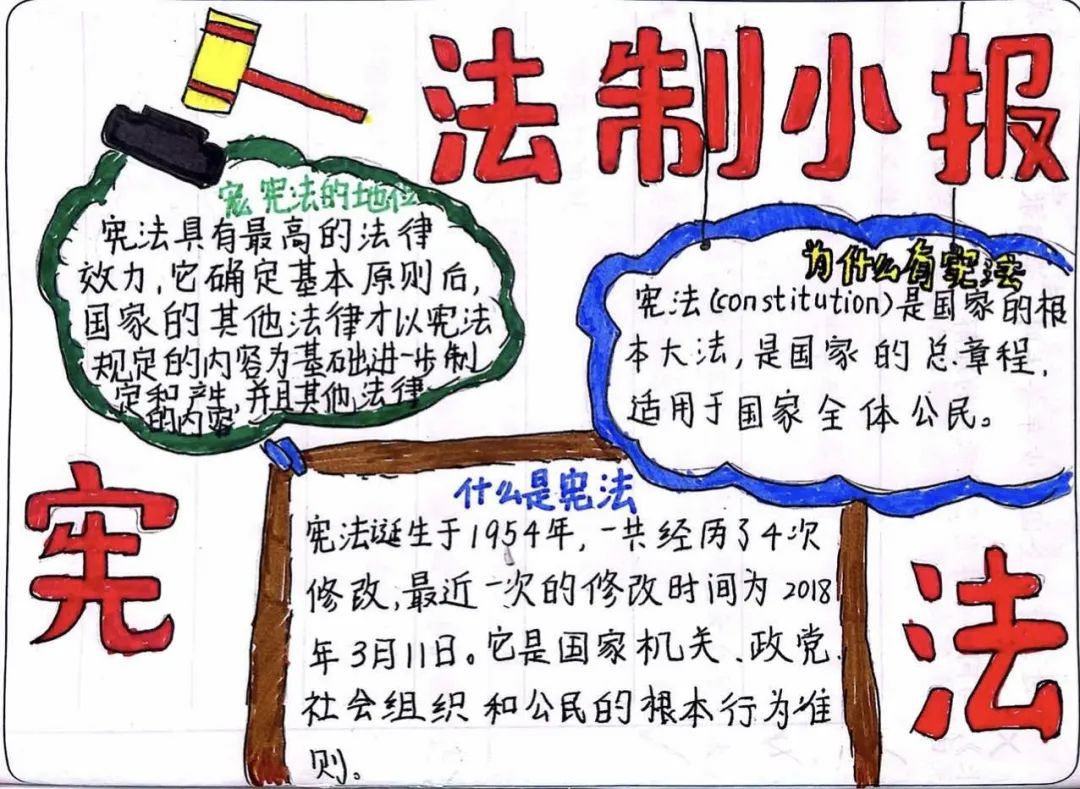 法制小报
宪法的地位
宪法具有最高的法律
效力,它确定基本原则后,
国家的其他法律才以宪法
规定的内容为基础进一步制
定和产生,并且其他法律
的内容
为什么有宪法
宪法(constitution)是国家的根
本大法,是国家的总章程,
适用于国家全体公民。
什么是宪法
宪法诞生于1954年,一共经历了4次
修改,最近一次的修改时间为2018
年3月11日。它是国家机关、政党、
社会组织和公民的根本行为准
则。
宪
法